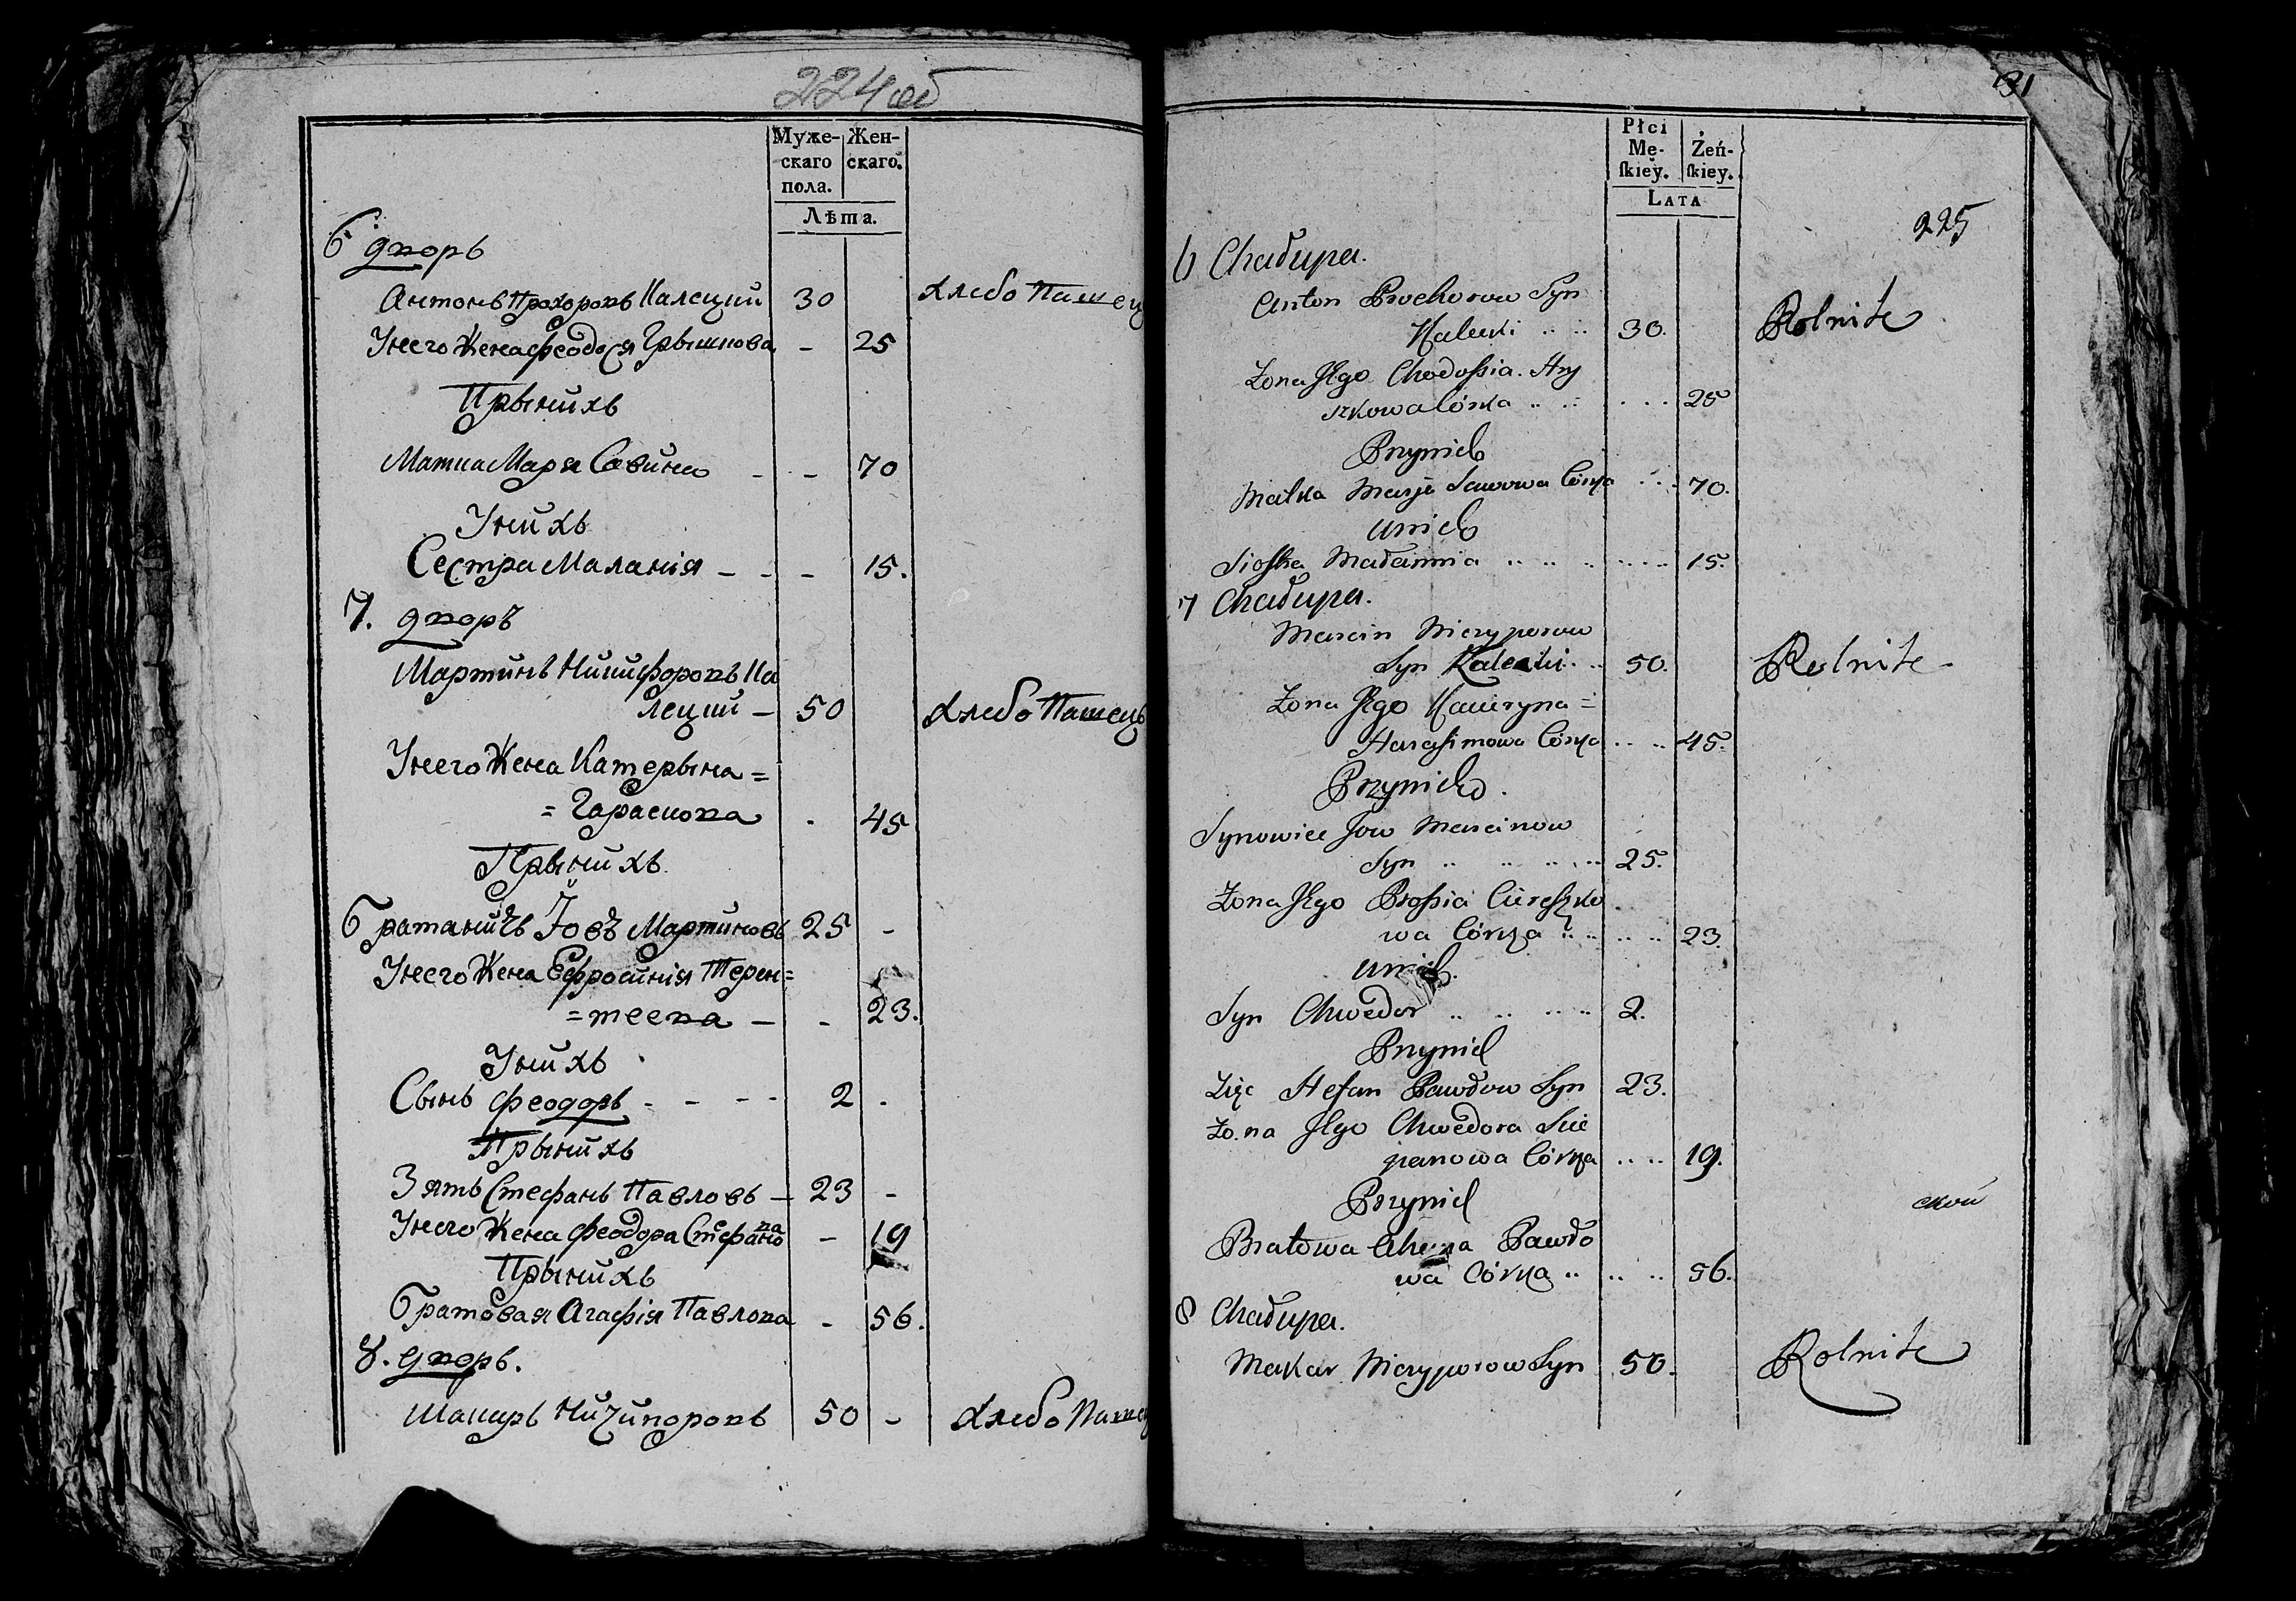 224 об
Муже- Жен-
скаго скаго.
пола.
Лѣта.
6 дворъ
Антонъ Прохоровъ Калецкий 30 хлебопашецъ
У него жена Феодося Грышкова - 25
При нийхъ
Матка Маря Савина - - 70
У нийхъ
Сестра Маланія - - - 15.
7. дворъ
Мартинъ Никифоровъ Ка
лецкий - 50 хлебопашецъ
У него жена Катерына =
= Гарасиова - 45
При нийхъ
Братаничъ Іовъ Мартиновъ 25 -
У него жена Ефросинія Терен=
= теева - - 23.
У нийхъ
Сынъ Феодоръ - - - - 2 -
При нийхъ
Зять Стефанъ Павловъ - 23 -
У него жена Феодора Стефанова - 19
При нийхъ
Братовая Агафія Павлова - 56.
8. дворъ.
Макаръ Ничипоровъ 50 - хлебопашецъ
31
Płci
Mę- Żeń-
skiey. skiey.
LATA
225
6 Chałupa.
Anton Prochorow Syn
Kalecki .. .. 30. Rolnik
Zona Jego Chodossia Hry
szkowa Córka .. .. . . . 25
Przynich
Matka Marja Sawowa Córka . . . 70.
Unich
Siostra Małannia .. .. .. .. .. 15.
7 Chałupa.
Marcin Niczyporow
Syn Kalecki .. 50. Rolnik -
Zona Jego Kateryna =
Harasimowa Córka .. .. 45.
Przynich.
Synowiec Jow Marcinow
Syn .. .. .. .. 25.
Zona Jego Prossia Cereszko
wa Córka .. .. .. .. 23.
Unich.
Syn Chwedor .. .. .. .. 2.
Przynich
Zięć Stefan Pawłow Syn 23.
Zona Jego Chwedora Scie
panowa Córka .. .. 19.
Przynich
ской
Bratowa Pawło
wa Córka .. .. .. 56.
8 Chałupa.
Makar Niczyporow Syn 50. Rolnik